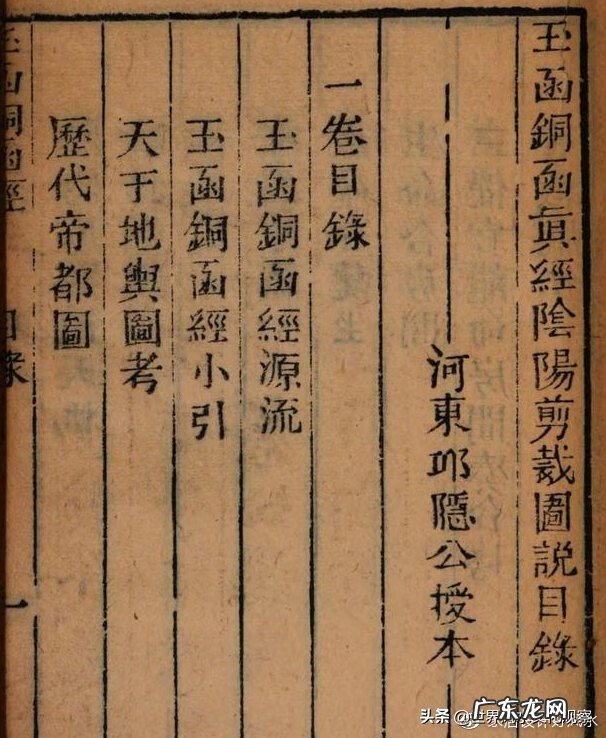 玉函銅函眞經陰陽剪裁圖說目錄
河東邱隱公授本
一卷目錄
玉函銅函經源流
玉函銅函經小引
天于地輿圖考
歷代帝都圖
玉函銅函經 目錄 一
广东龙网
头条